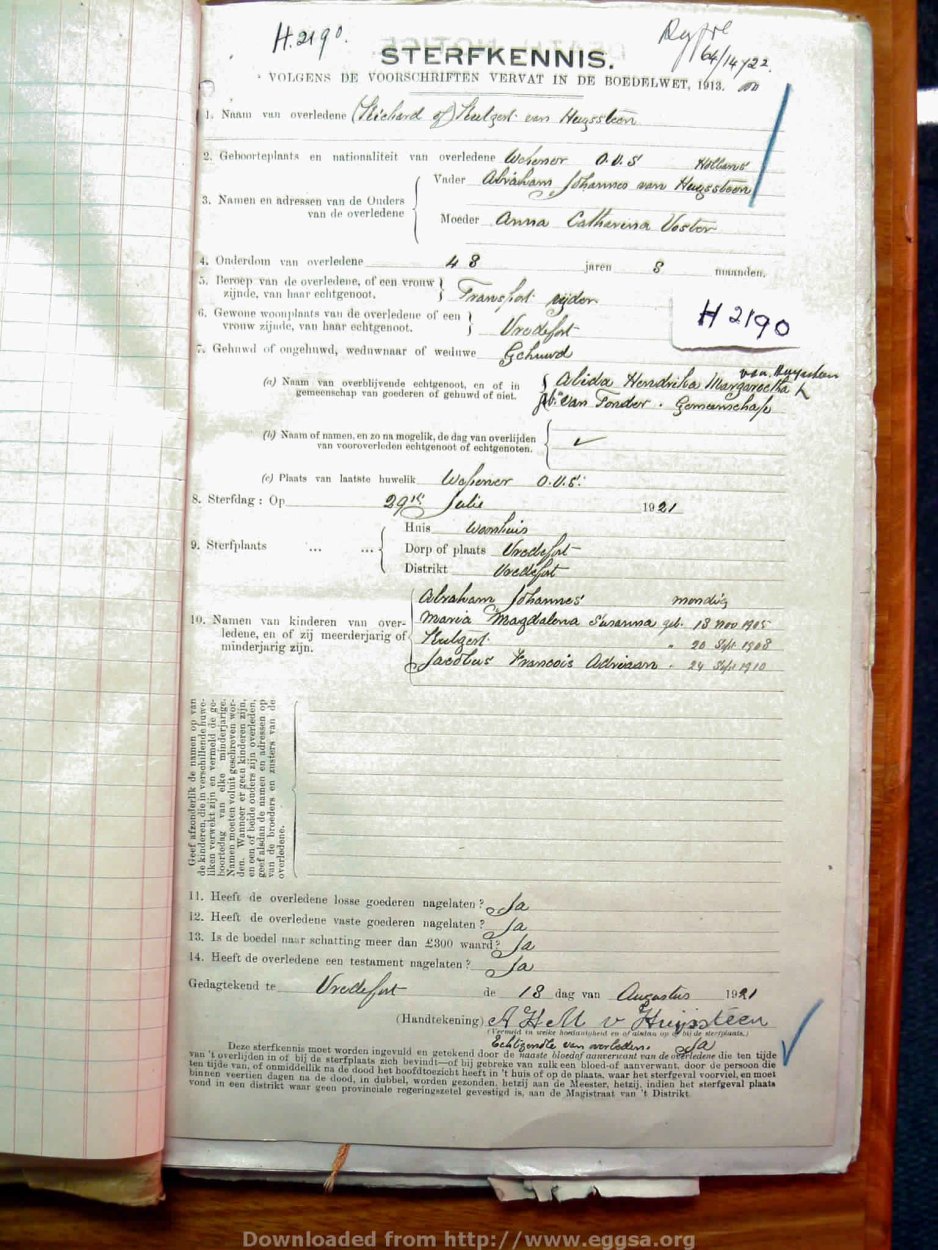 H. 2190.
64/14/22
STERFKENNIS.
VOLGENS DE VOORSCHRIFTEN VERVAT IN DE BOEDELWET, 1913.
1. Naam van overledene (Richard of) Hulgert van Huyssteen
2. Geboorteplaats en nationaliteit van overledene Wepener O.V.S Hollans
3. Namen en adressen van de Ouders van de overledene
Vader Abraham Johannes van Huyssteen
Moeder Anna Catharina Voster
4. Ouderdom van overledene 48 jaren 8 maanden.
5. Beroep van de overledene, of een vrouw zijnde, van haar echtgenoot. Transport rijder
6. Gewone woonplants van de overledene of een vrouw zijnde, van haar echtgenoot. Vredefort
H 2190
7. Gehuwd of ongehuwd, weduwnaar of weduwe Gehuwd
(a) Naam van overblijvende echtgenoot, en of in gemeenschap van goederen of gehuwd of niet.
Alida Hendrika Margaretha van Huyssteen
van Tonder. Gemeenschap
(b) Naam of namen, en zo na mogelik, de dag van overlijden van vooroverleden echtgenoot of echtgenoten.
(c) Plaats van laatste huwelik Wepener O.V.S.
8. Sterfdag: Op 29ste Julie 1921
9. Sterfplaats ... ...
Huis Woonhuis
Dorp of plaats Vredefort
Distrikt Vredefort
10. Namen van kinderen van overledene, en of zij meerderjarig of minderjarig zijn.
Abraham Johannes mondig
Maria Magdalena Susanna geb. 13 Nov 1905
Hulgert " 20 Sept 1908
Jacobus Francois Adriaan " 24 Sept 1910
Geef afzonderlik de namen op van
de kinderen, die in verschillende huwe-
liken verwekt zijn en vermeld de ge-
boortedag van elke minderjarige.
Namen moeten voluit geschreven wor-
den. Wanneer er geen kinderen zijn,
en een of beide ouders zijn overleden,
geef alsdan de namen en adressen op
van de broeders en zusters van de
overledene.
11. Heeft de overledene losse goederen nagelaten? Ja
12. Heeft de overledene vaste goederen nagelaten? Ja
13. Is de boedel naar schatting meer dan £300 waard? Ja
14. Heeft de overledene een testament nagelaten? Ja
Gedagtekend te Vredefort de 18 dag van Augustus 1921
(Handtekening) A H M v Huijssteen
(Vermeld in welke hoedanigheid en of alsdan op of bij de sterfplaats.)
Echtgenote van overledene. Ja
Deze sterfkennis moet worden ingevuld en getekend door de naaste bloedof aanverwant van de overledene die ten tijde
van 't overlijden in of bij de sterfplaats zich bevindt—of bij gebreke van zulk een bloed-of aanverwant, door de persoon die
ten tijde van, of onmiddellik na de dood het hoofdtoezicht heeft in 't huis of op de plaats, waar het sterfgeval voorviel, en moet
binnen veertien dagen na de dood, in dubbel, worden gezonden, hetzij aan de Meester, hetzij, indien het sterfgeval plaats
vond in een distrikt waar geen provinciale regeringszetel gevestigd is, aan de Magistraat van 't Distrikt.
Downloaded from http://www.eggsa.org